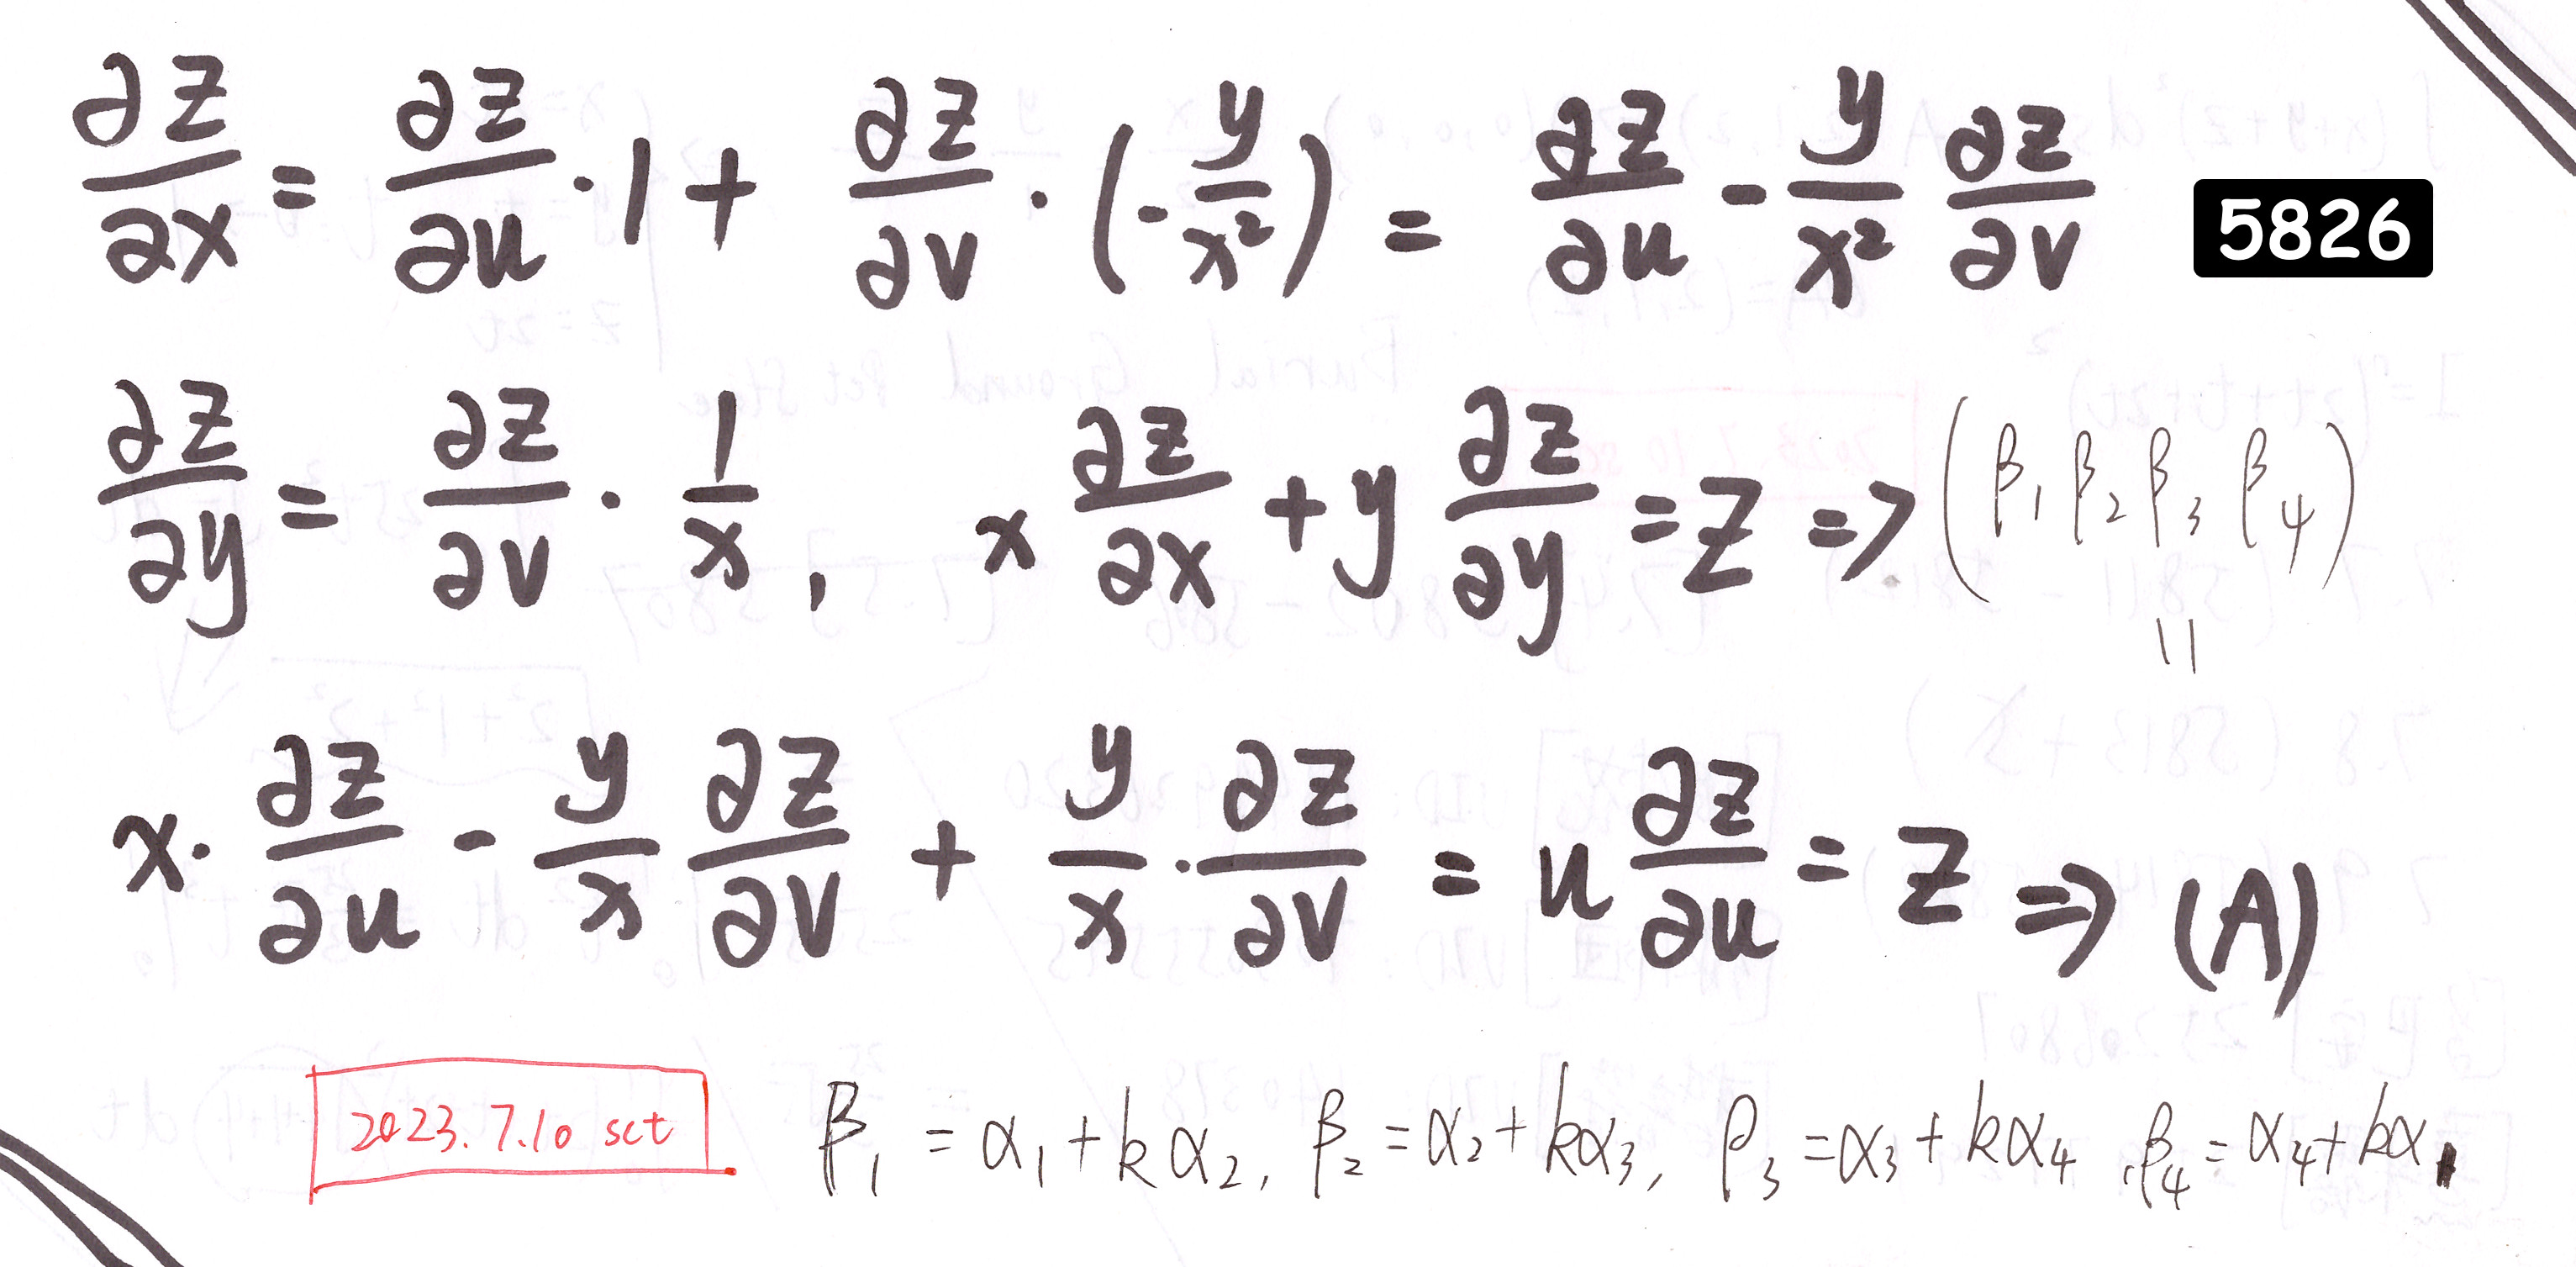 ∂z/∂x = ∂z/∂u · 1 + ∂z/∂v · (-y/x²) = ∂z/∂u - y/x² ∂z/∂v
5826
∂z/∂y = ∂z/∂v · 1/x , x ∂z/∂x + y ∂z/∂y = z => (β₁ β₂ β₃ β₄)
||
x · ∂z/∂u - y/x ∂z/∂v + y/x · ∂z/∂v = u ∂z/∂u = z => (A)
2023.7.10 sct
β₁ = α₁ + kα₂, β₂ = α₂ + kα₃, β₃ = α₃ + kα₄, β₄ = α₄ + kα₁